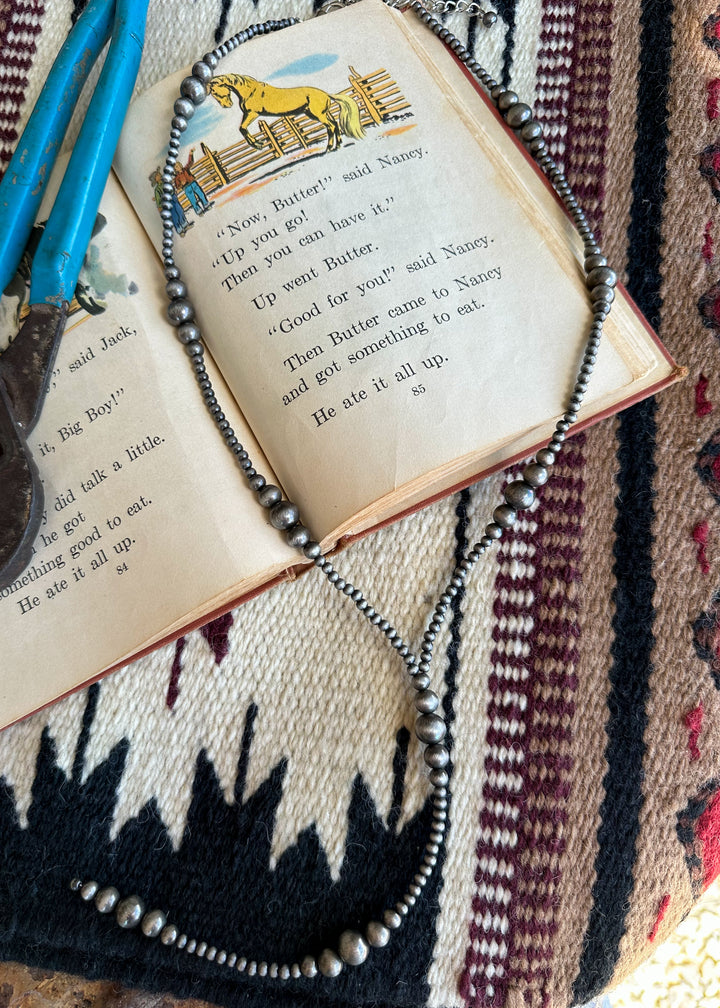 ," said Jack,
it, Big Boy!"
did talk a little.
he got
something good to eat.
He ate it all up.
84
"Now, Butter!" said Nancy.
"Up you go!
Then you can have it."
Up went Butter.
"Good for you!" said Nancy.
Then Butter came to Nancy
and got something to eat.
He ate it all up.
85